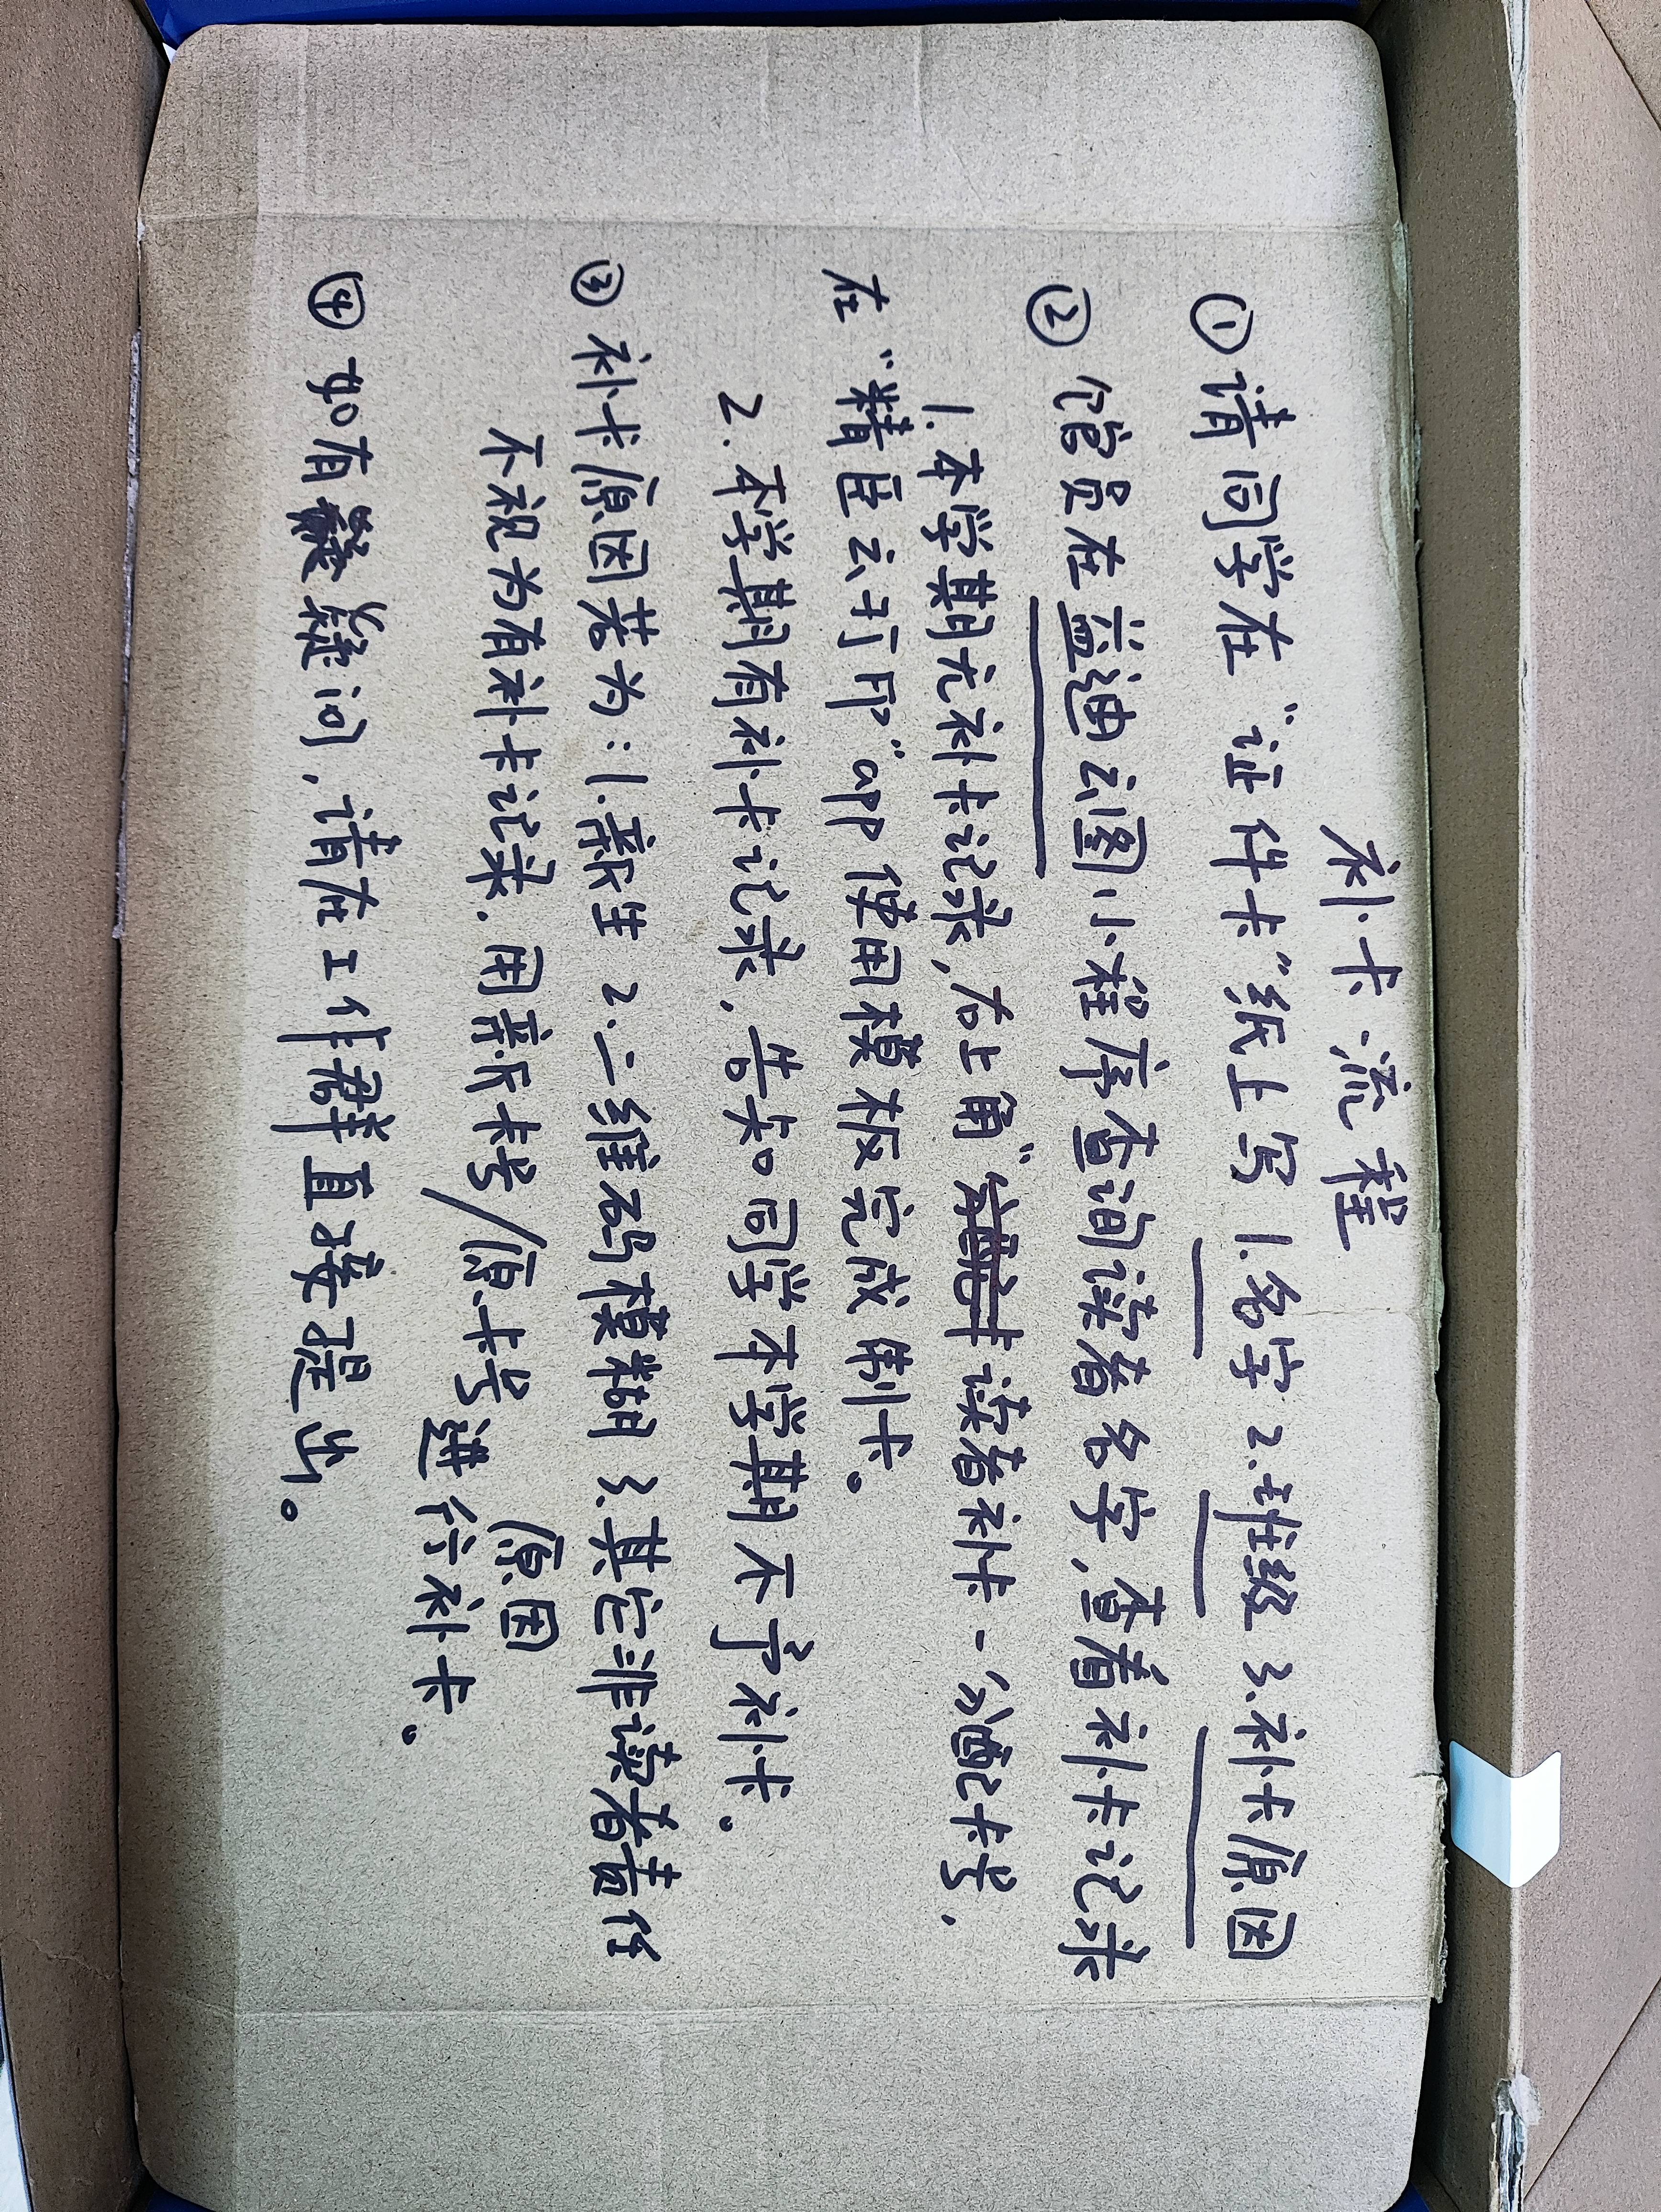 补卡流程
①请同学在“证件卡”纸上写 1.名字 2.班级 3.补卡原因
② 馆员在益迪云图小程序查询读者名字,查看补卡记录
1.本学期尢补卡记录,右上角“读者补卡-分配卡号,
在“精臣云打印”app 使用模板完成制卡。
2.本学期有补卡记录,告知同学本学期不予补卡.
③ 补卡原因若为:1.新生 2.二维码模糊 3.其它非读者责任
原因
不视为有补卡记录.用新卡号/原卡号进行补卡.
④ 如有疑问,请在工作群直接提出。